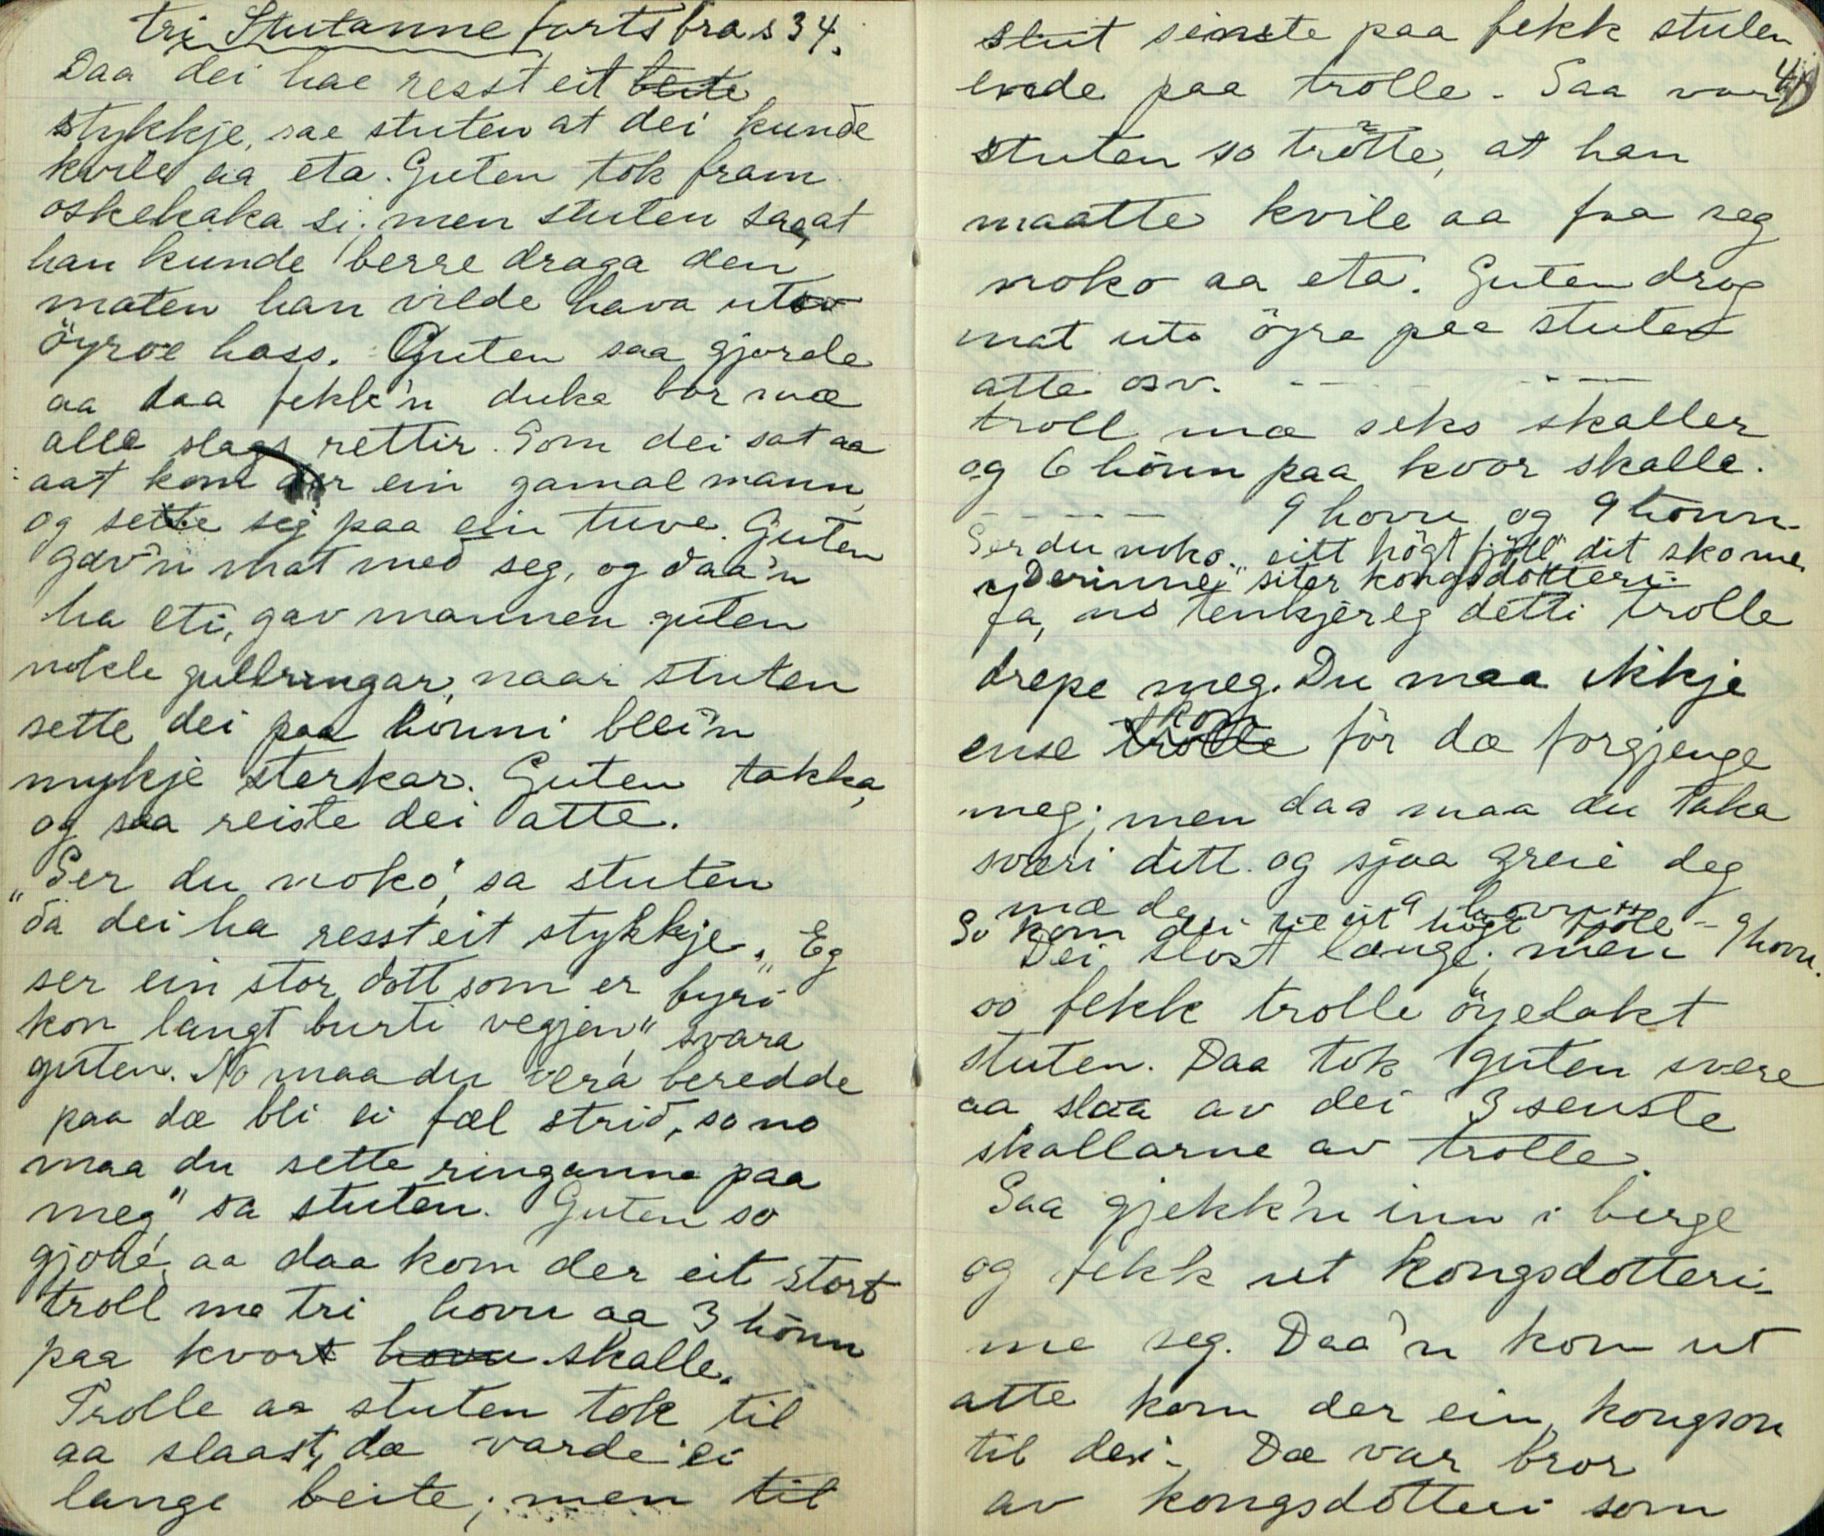 Tri Stutanne forts fra s 34.
Daa dei hae resst eit beite
stykkje, sae stuten at dei kunde
kvile aa eta. Guten tok fram
oskekaka si; men stuten sae, at
han kunde berre draga den
maten han vilde hava utov
öyroe hass. Guten saa gjorde
aa daa fekk'n duka bor mæ
alle slags rettir. Som dei sat aa
aat kom der ein gamal mann,
og sette seg paa ein tuve. Guten
gav'n mat med seg, og daa'n
ha eti, gav mannen guten
nokle gullringar, naar stuten
sette dei paa hönni blei'n
mykje sterkar. Guten takka,
og saa reiste dei atte.
"Ser du noko", sa stuten
da dei ha resst eit stykkje. "Eg
ser ein stor dott som er fyri
kon langt burti vegjen" svara
guten. No maa du vera beredde
paa dæ bli ei fæl strid, so no
maa du sette ringanne paa
meg" sa stuten. Guten so
gjode, aa daa kom der eit stort
troll me tri hovu aa 3 hönn
paa kvort hovu skalle.
Trolle aa stuten tok til
aa slaast, dæ varde ei
lange beite; men til
slut sinste paa fekk stuten
evede paa trolle. Saa var
41
stuten so trötte, at han
maatte kvile aa faa seg
noko aa eta. Guten drog
mat uto öyra paa stuten
atte osv. - - - - -
troll mæ seks skaller
og 6 hönn paa kvor skalle.
- - - - - 9 hovu og 9 hönn
Ser du noko. "eitt högt fjöll" dit sko me.
Derinne siter kongsdotteri.
Ja, no tenkjer eg detti trolle
drepe meg. Du maa ikkje
ense trolle kom för dæ forgjenge
meg; men daa maa du taka
sværi ditt og sjaa greie deg
mæ de 9 hovu
So kom dei te eit högt fjöll - 9 hovu.
Dei slost længe; men
so fekk trolle öyelakt
stuten. Daa tok guten svære
aa slaa av dei 3 senste
skallarne av trolle.
Saa gjekk'n inn i berge
og fekk ut kongsdotteri
me seg. Daa'n kom ut
atte kom der ein kongson
til dei. Dæ var bror
av kongsdotteri som